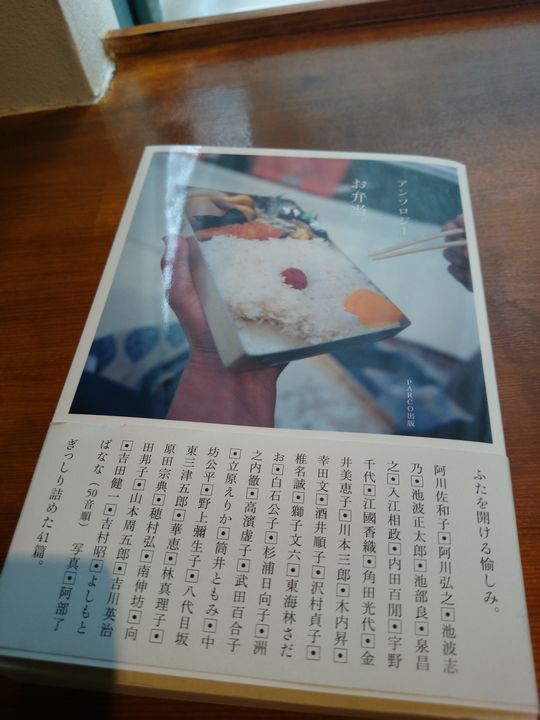 アンソロジー
お弁当。
PARCO出版
ふたを開ける愉しみ。
阿川佐和子▣阿川弘之▣池波志
乃▣池波正太郎▣池部良▣泉昌
之▣入江相政▣内田百閒▣宇野
千代▣江國香織▣角田光代▣金
井美恵子▣川本三郎▣木内昇▣
幸田文▣酒井順子▣沢村貞子▣
椎名誠▣獅子文六▣東海林さだ
お▣白石公子▣杉浦日向子▣洲
之内徹▣高濱虚子▣武田百合子
▣立原えりか▣筒井ともみ▣中
坊公平▣野上彌生子▣八代目坂
東三津五郎▣華恵▣林真理子▣
原田宗典▣穂村弘▣南伸坊▣向
田邦子▣山本周五郎▣吉川英治
▣吉田健一▣吉村昭▣よしもと
ばなな（50音順）　写真▣阿部了
ぎっしり詰めた41篇。